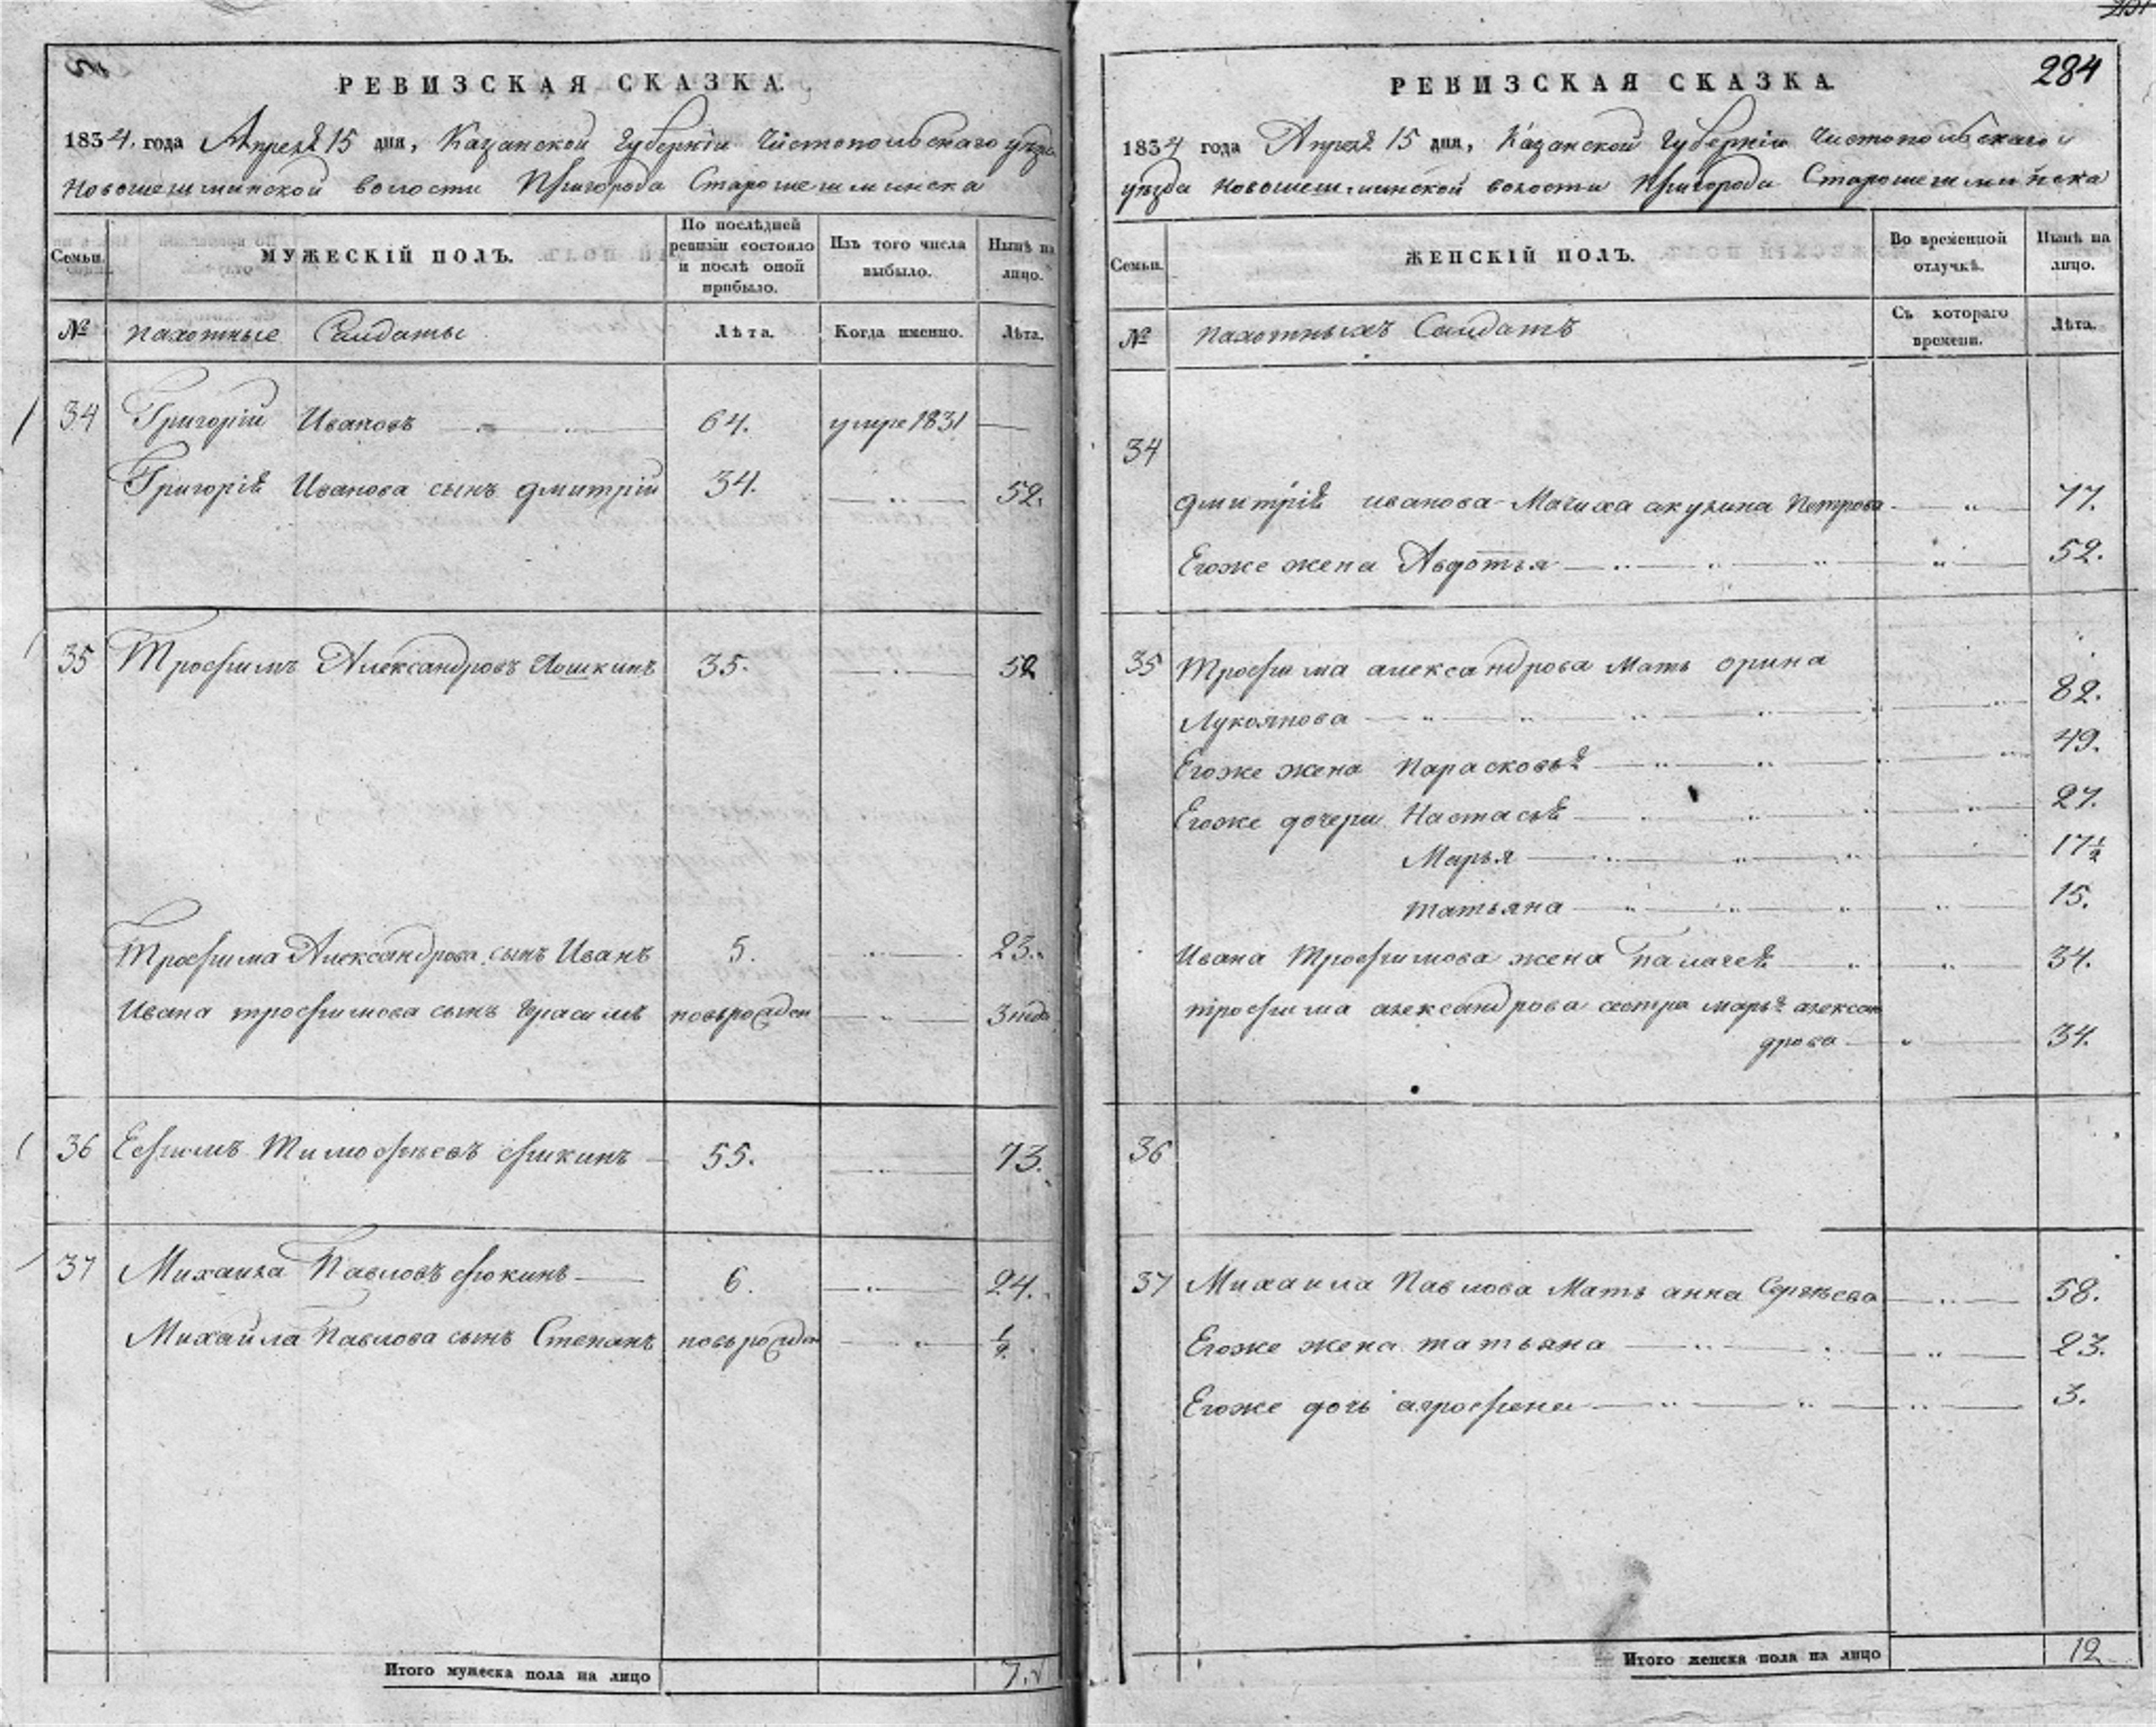 РЕВИЗСКАЯ СКАЗКА.
1834. года Апреля 15 дня, Казанской Губернiи Чистопольскаго уезда
Новошешминской волости Пригорода Старошешминска
Семьи.
МУЖЕСКІЙ ПОЛЪ.
По послѣдней ревизіи состояло и послѣ оной прибыло.
Изъ того числа выбыло.
Нынѣ на лицо.
№ пахотные Салдаты Лѣта. Когда именно. Лѣта.
34 Григорiй Ивановъ 64. умре 1831
Григорiя Иванова сынъ Дмитрiй 34. 52.
35 Трофимъ Александровъ Лошкинъ 35. 52
Трофима Александрова сынъ Иванъ 5. 23.
Ивана трофимова сынъ Герасимъ новорожден 3 года
36 Ефимъ Тимофѣевъ 55. 73.
37 Михаила Павловъ 6. 24.
Михайла Павлова сынъ Степанъ новорожден ½
Итого мужеска пола на лицо 7.
284
РЕВИЗСКАЯ СКАЗКА.
1834 года Апреля 15 дня, Казанской Губернiи Чистопольскаго
уезда Новошешминской волости Пригорода Старошешминска
Семьи.
ЖЕНСКІЙ ПОЛЪ.
Во временной отлучкѣ.
Нынѣ на лицо.
№ пахотныхъ Салдатъ Съ котораго времени. Лѣта.
34
Дмитрiя иванова Мачиха акулина Петрова 77.
Егоже жена Авдотья 52.
35 Трофима александрова Мать орина
Лукоянова 82.
Егоже жена Парасковья 49.
Егоже дочери Настасья 27.
Марья 17½
татьяна 15.
Ивана Трофимова жена Палагея 34.
трофима александрова сестра марья алексан
дрова 34.
36
37 Михаила Павлова Мать анна Сергѣева 58.
Егоже жена татьяна 23.
Егоже дочь агрофена 3.
Итого женска пола на лицо 12